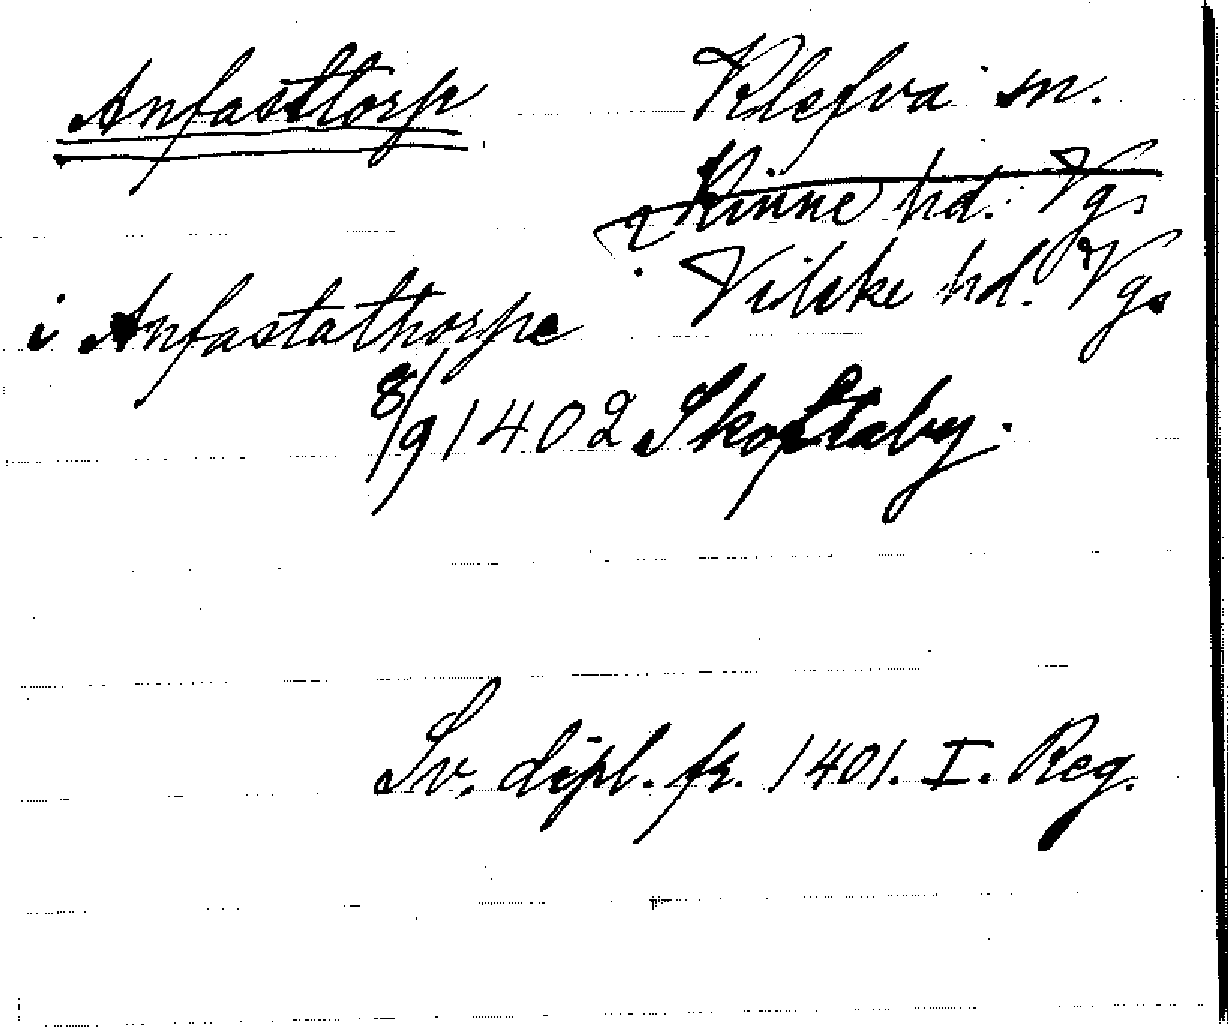 Anfasttorp
Klefva sn.
Kinne hd. Vg.
Vilske hd. Vg.
i Anfastathorpe
8/9 1402 Skoftaby.
Sv. dipl. fr. 1401. I. Reg.